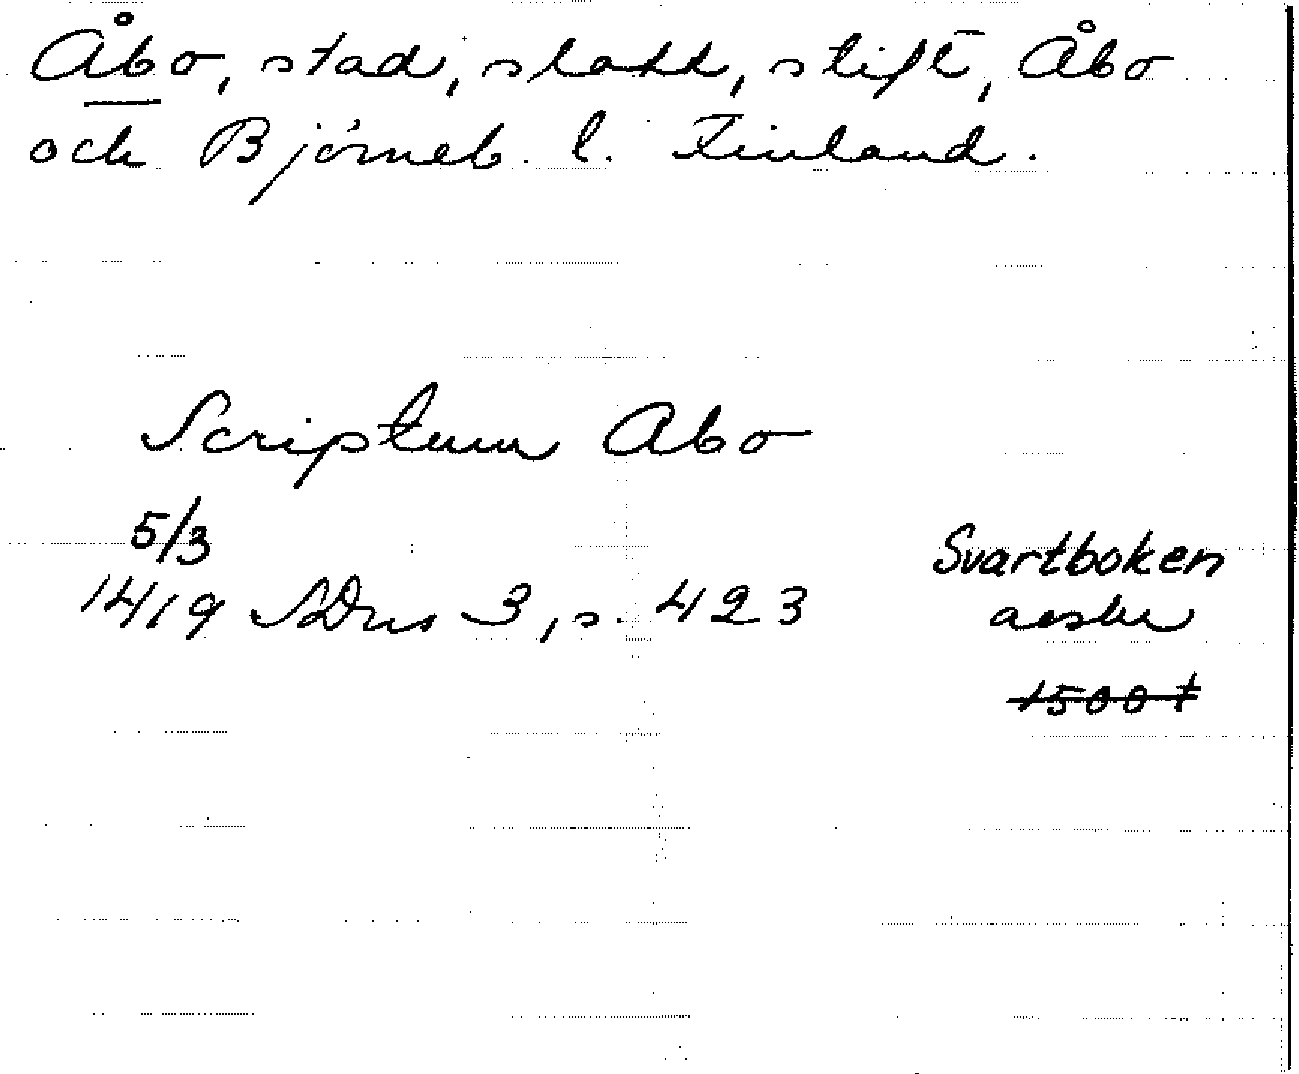 Åbo, stad, slott, stift, Åbo
och Björneb. l. Finland.
Scriptum Abo
5/3
1419 SDns 3, s. 423
Svartboken
avskr
1500 t